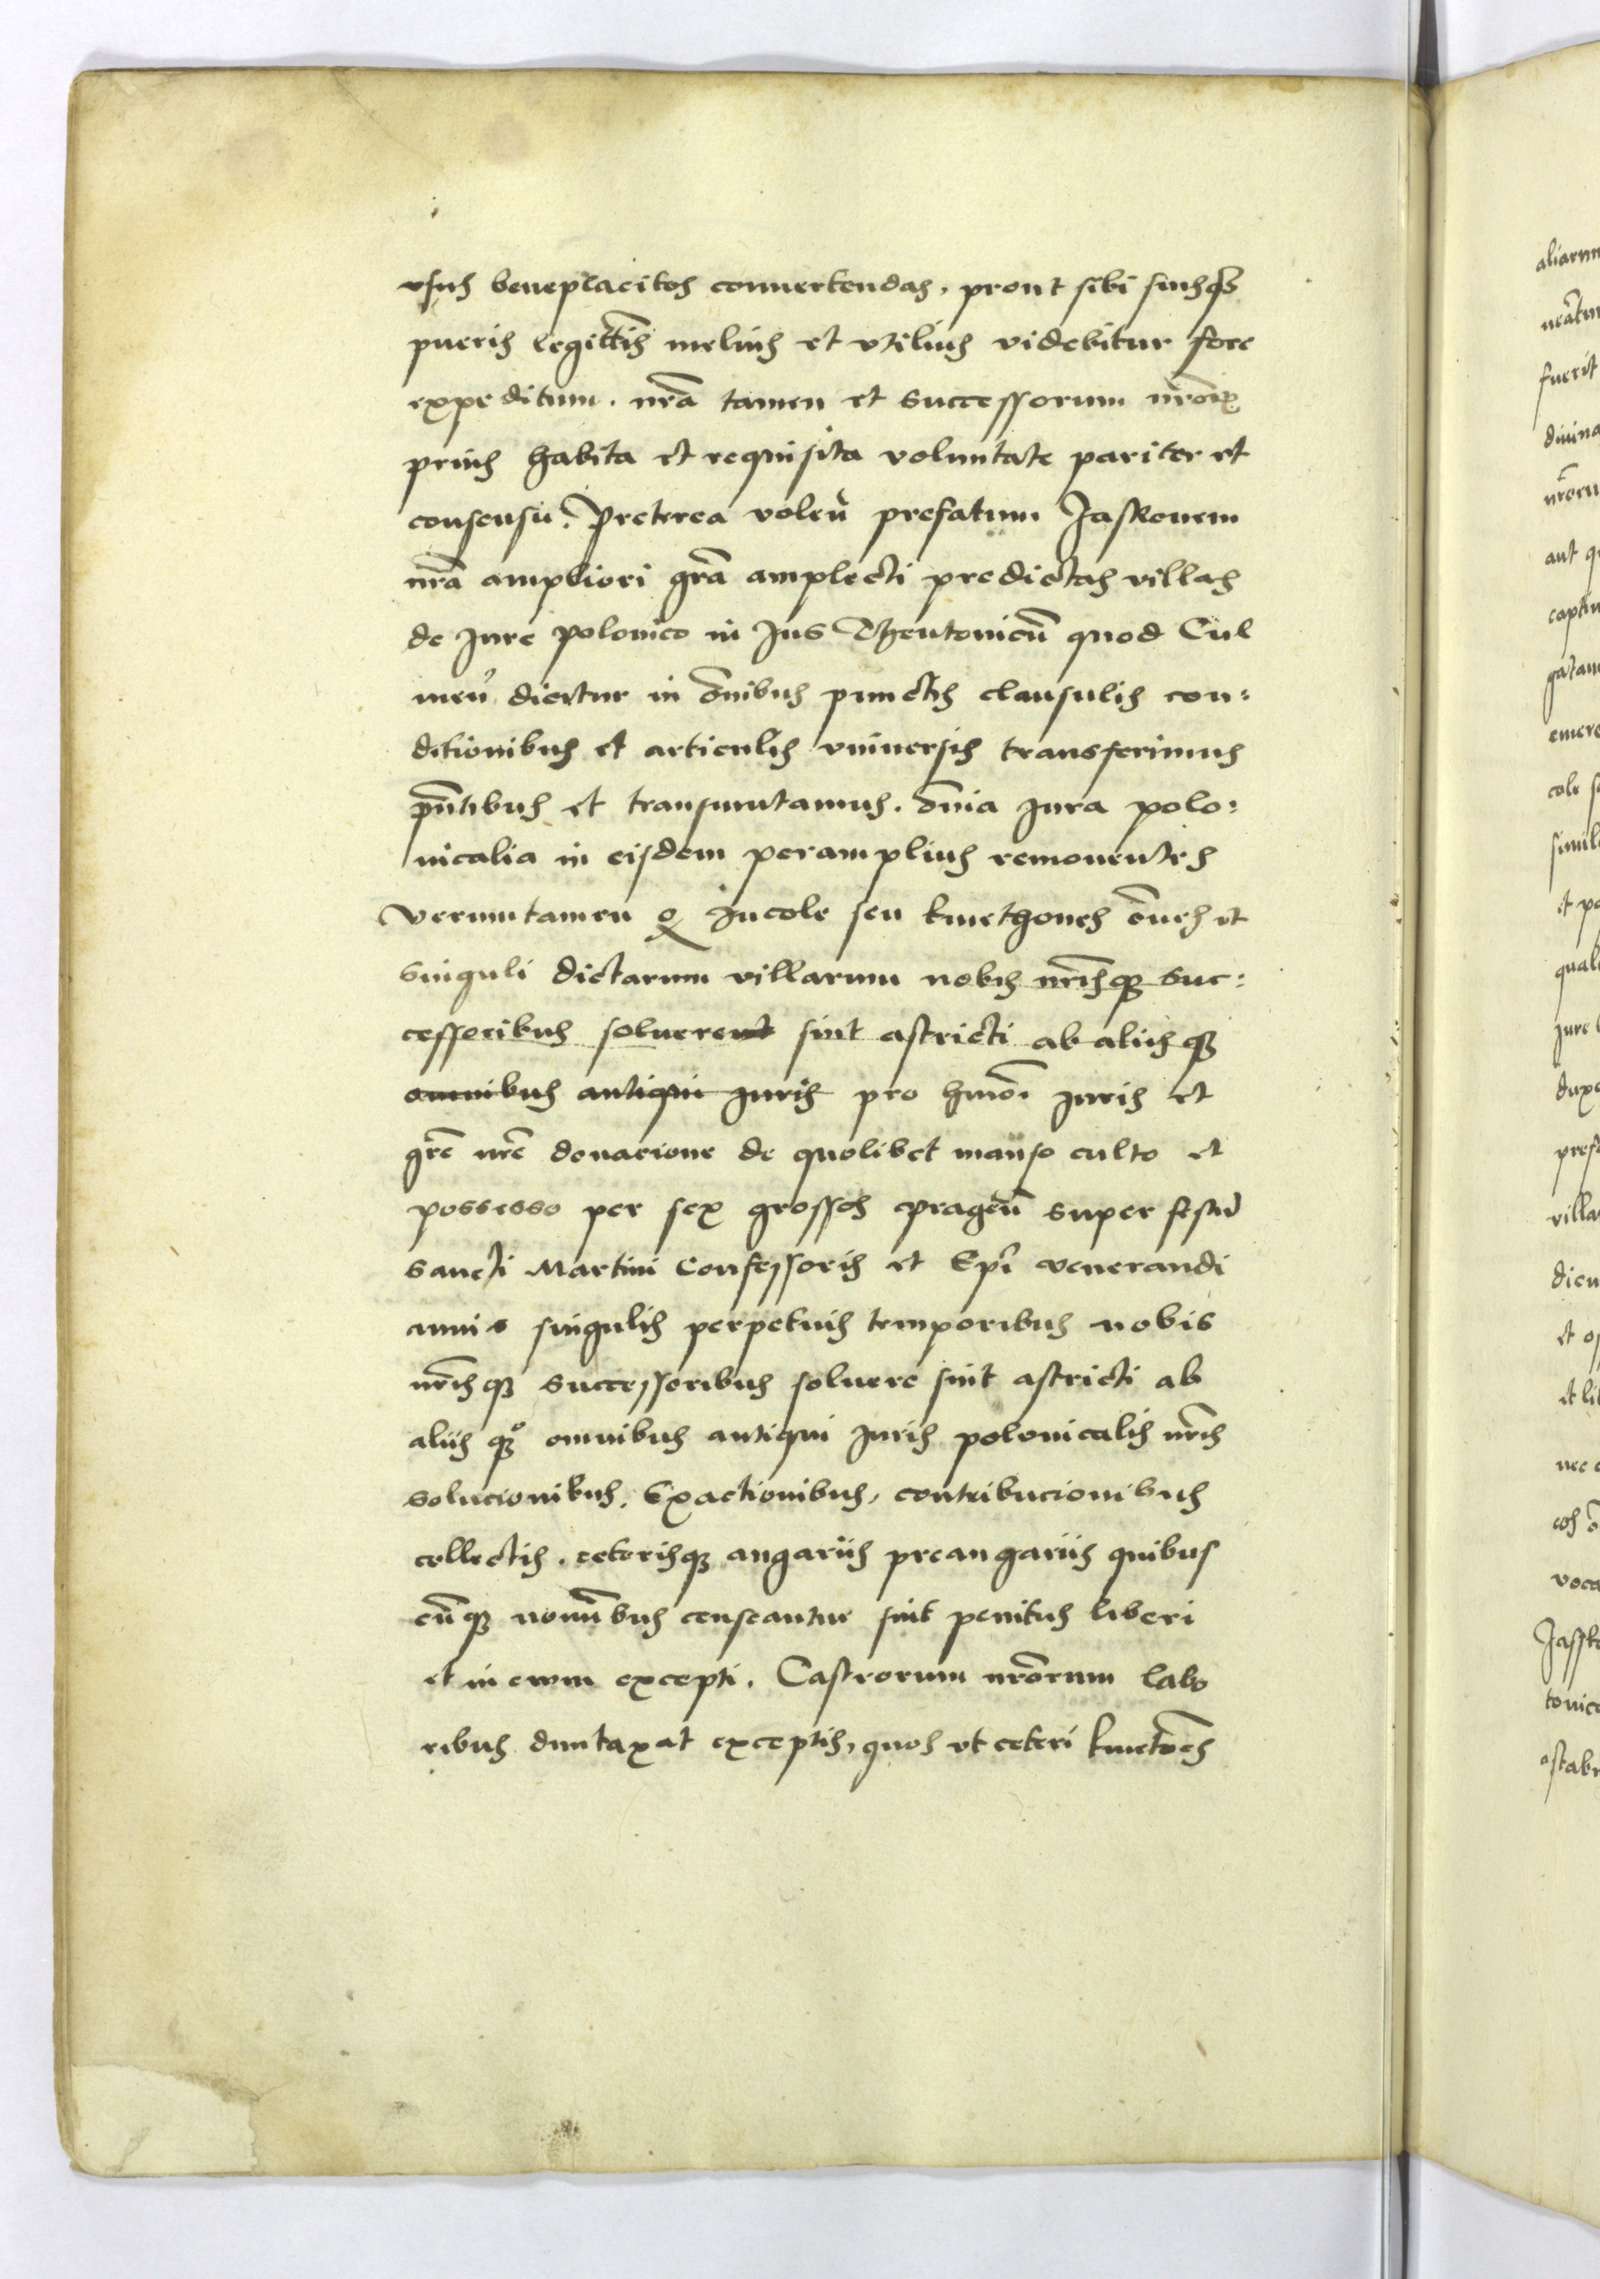 vsus beneplacitos conuertendas, prout sibi suisqꝫ
pueris legittis melius et vtilius videbitur fore
expeditum. nrā tamen et successorum nrōrꝝ
prius habita et requisita voluntate pariter et
consensu. Preterea volen̄ prefatum Jaskonem
nrā ampliori grā amplecti predictas villas
de Jure polonico in Jus Theutonicū quod Cul
men̄ dicitur in ōnibus punctis clausulis con:
ditionibus et articulis vniuersis transferimus
pn̄tibus et transmutamus. ōnia Jura polo:
nicalia in eisdem peramplius remouentes
Verumtamen ꝙ Incole seu kmethones ōnes et
singuli dictarum villarum nobis nrīsqꝫ suc:
cessoribus soluere sint astricti ab aliisqꝫ
omnibus antiqui Juris pro hmōi Juris et
grē nrē donacione de quolibet manso culto et
possesso per sex grossos pragen̄ super festū
sancti Martini Confessoris et Epī venerandi
annis singulis perpetuis temporibus nobis
nrīsqꝫ successoribus soluere sint astricti ab
aliisqꝫ omnibus antiqui Juris polonicalis nrīs
solucionibus. Exactionibus, contribucionibus
collectis. ceterisqꝫ angariis preangariis quibus
cūqꝫ nomībus censeantur sint penitus liberi
et in ewm excepti. Castrorum nrōrum labo
ribus duntaxat exceptis, quos vt ceteri kmetōes
aliarum
fuerit
diuina
aut
villa
et